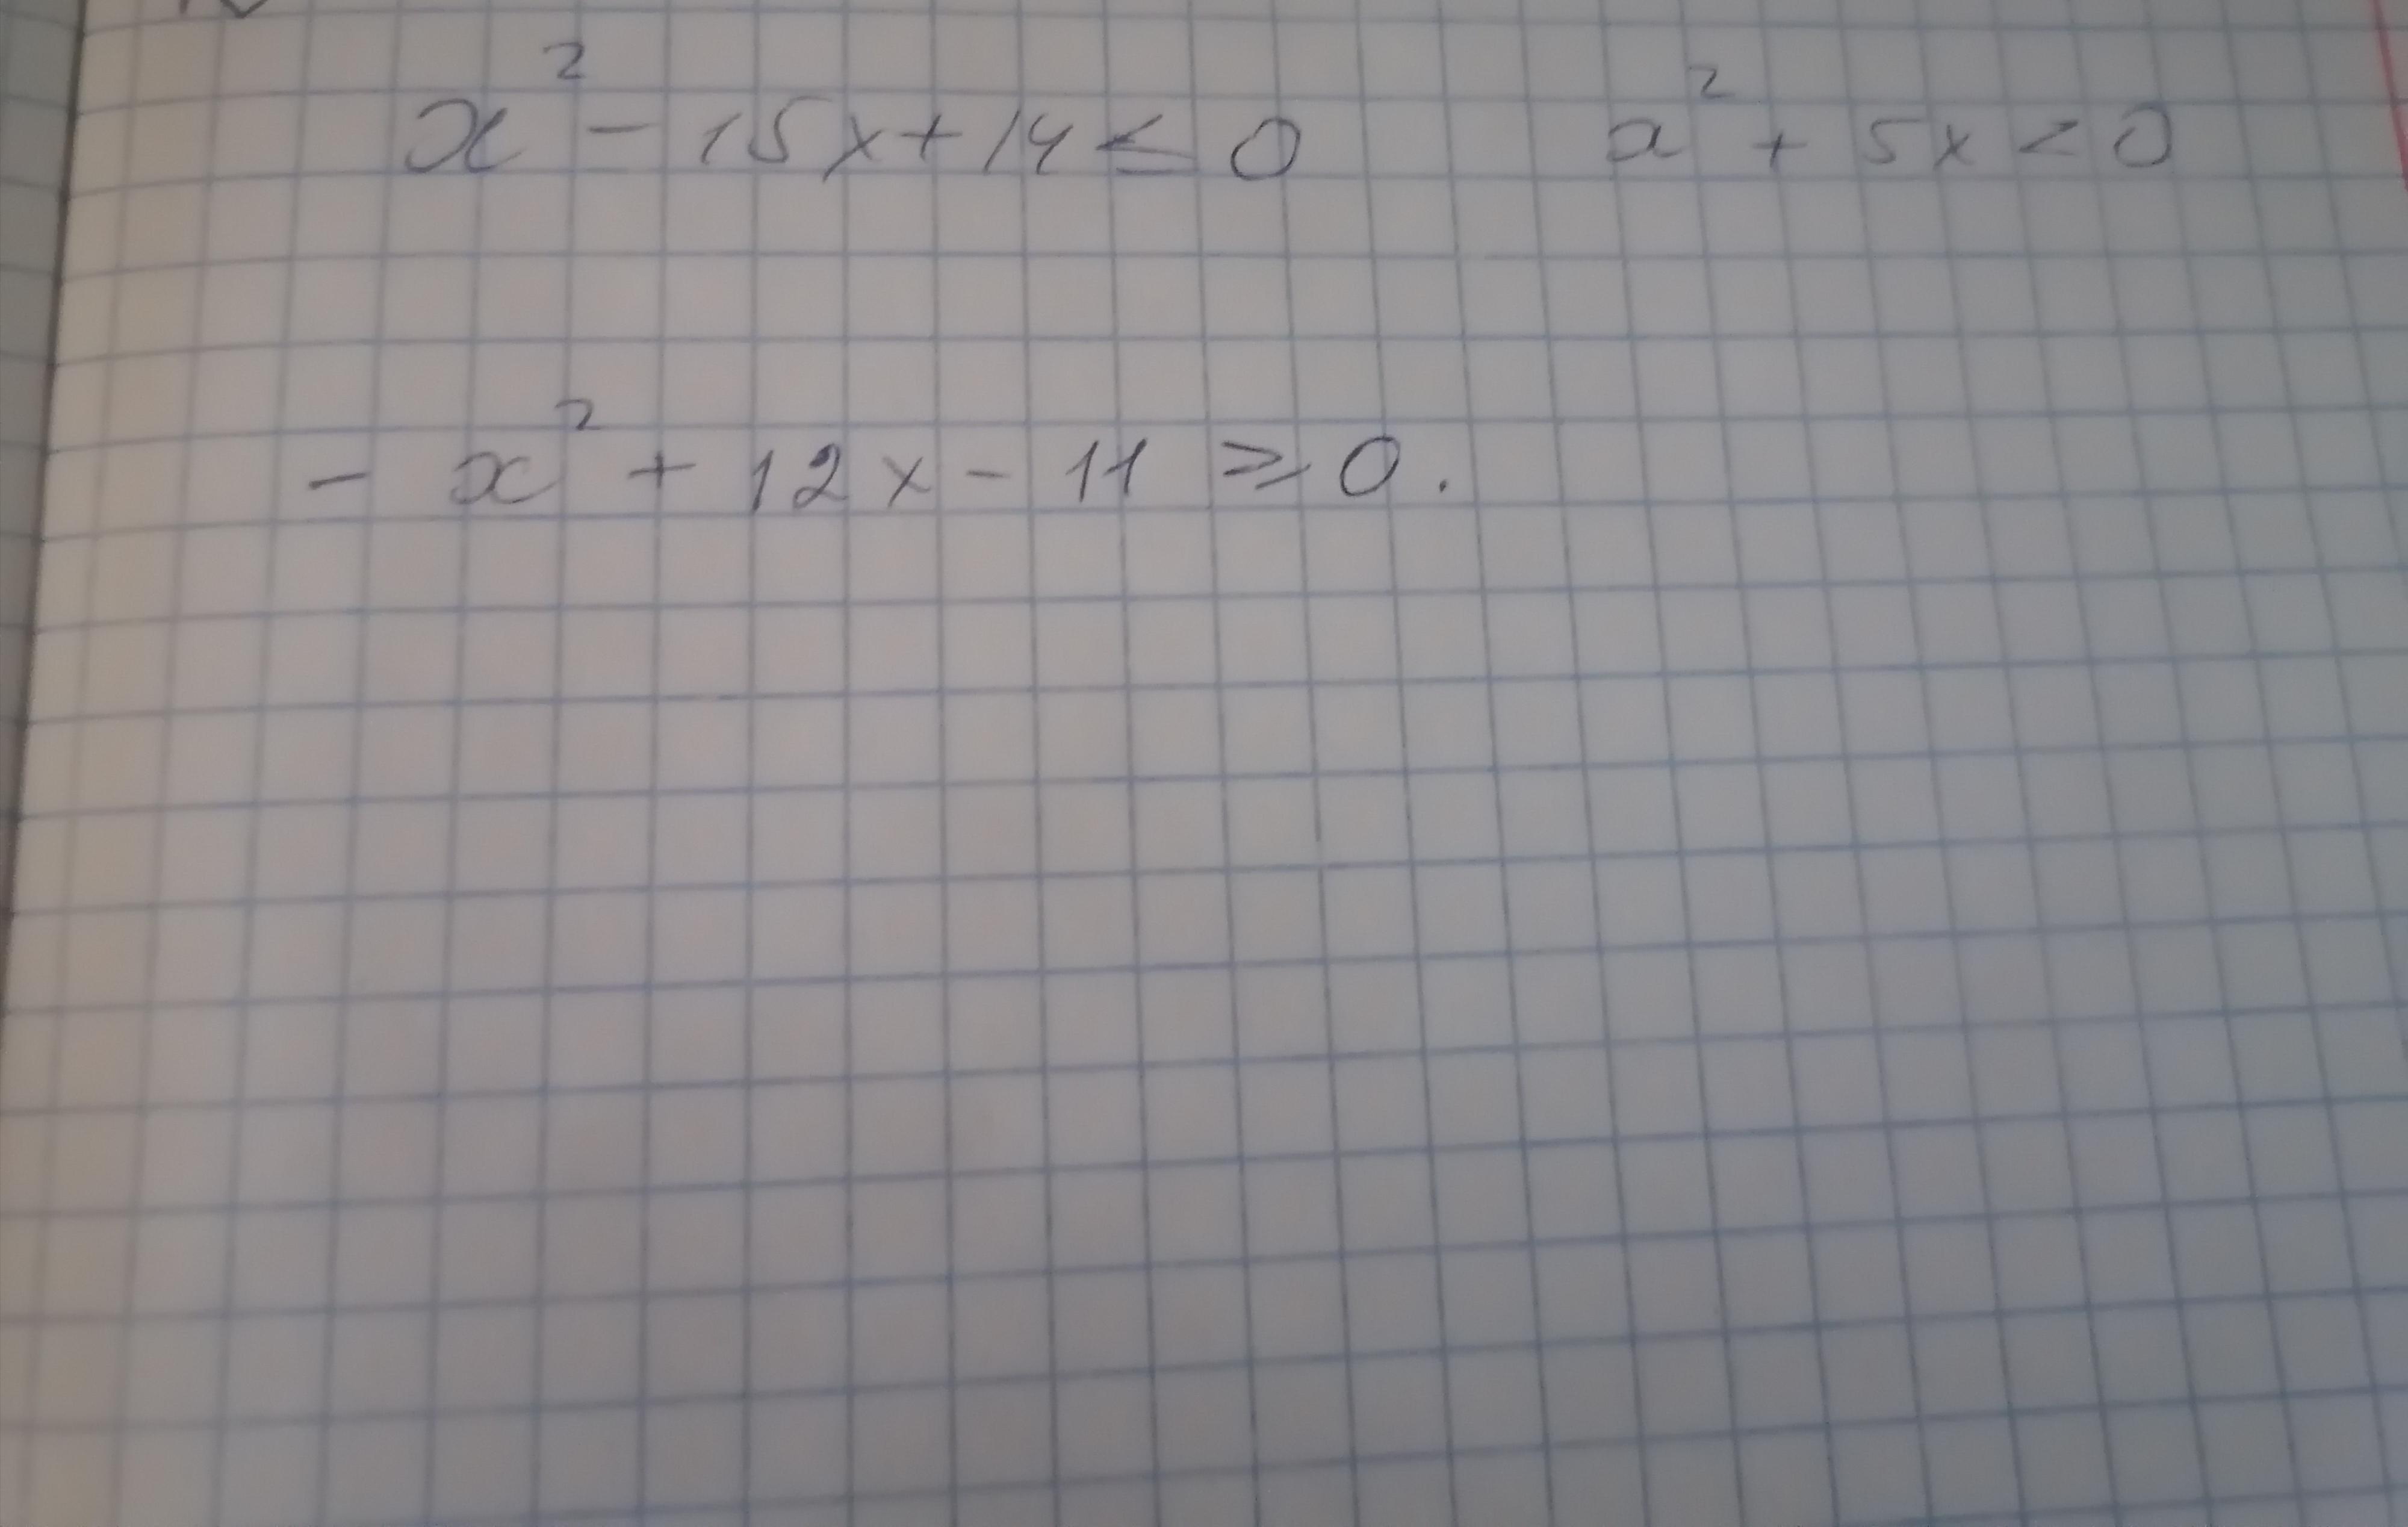 x² - 15x + 14 ≤ 0 a² + 5x < 0
- x² + 12x - 11 ≥ 0.